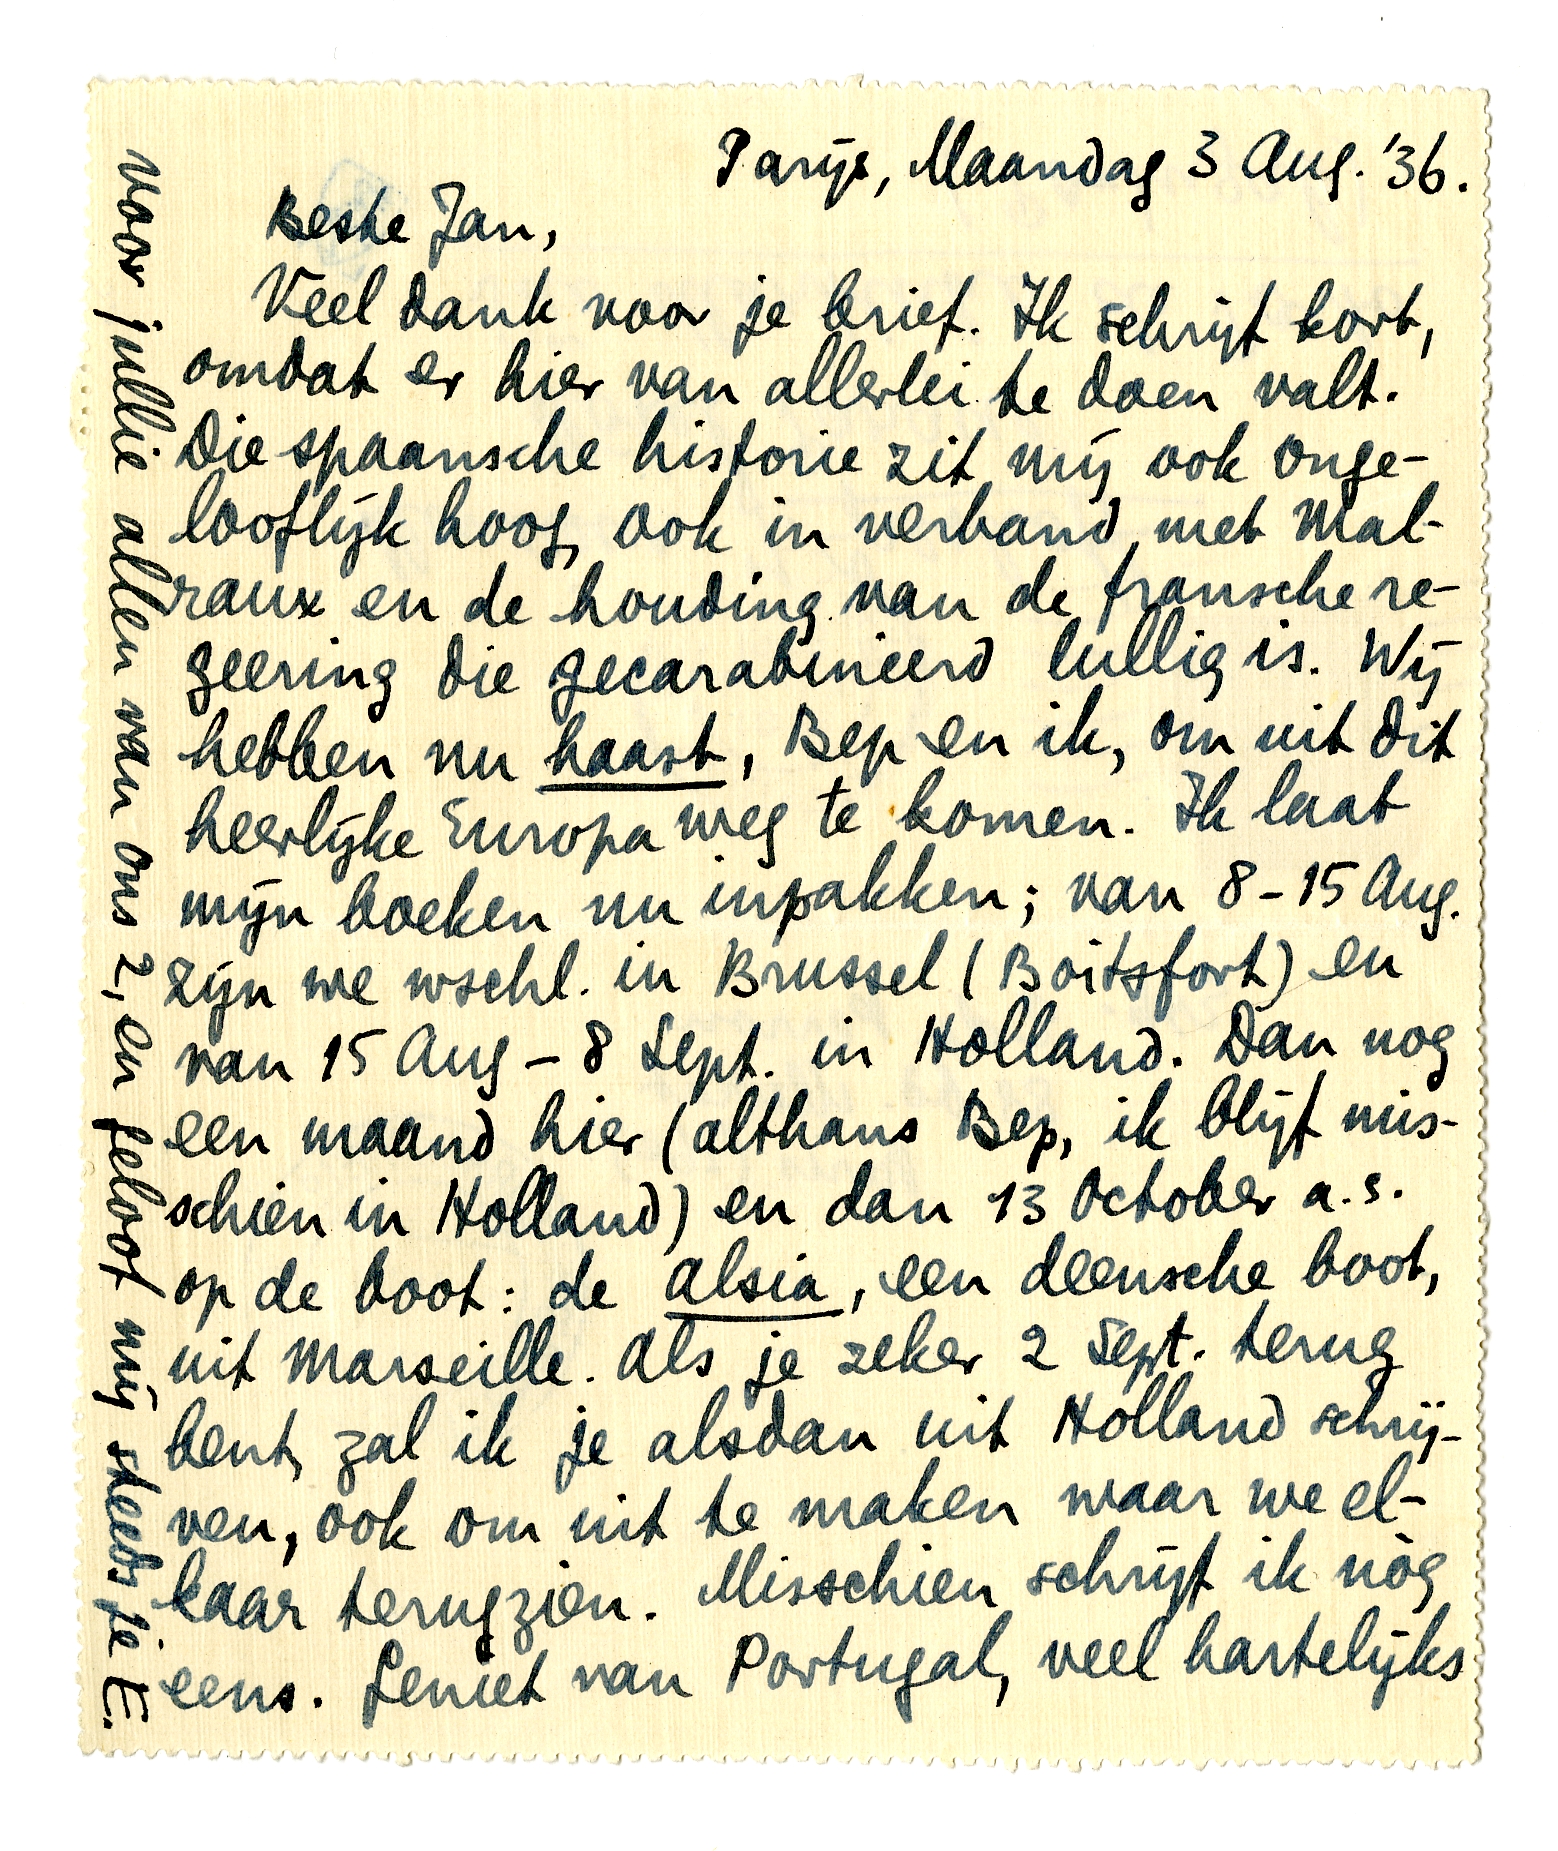 Parijs, Maandag 3 Aug. '36.
Beste Jan,
Veel dank voor je brief. Ik schrijf kort,
omdat er hier van allerlei te doen valt.
Die spaansche historie zit mij ook onge-
looflijk hoog, ook in verband met Mal-
raux en de houding van de fransche re-
geering die gecarabineerd lullig is. Wij
hebben nu haast, Bep en ik, om uit dit
heerlijke Europa weg te komen. Ik laat
mijn boeken nu inpakken; van 8 - 15 Aug.
zijn we wschl. in Brussel (Boitsfort) en
van 15 Aug - 8 Sept. in Holland. Dan nog
een maand hier (althans Bep, ik blijf mis-
schien in Holland) en dan 13 October a.s.
op de boot: de Alsia, een deensche boot,
uit Marseille. Als je zeker 2 Sept. terug
bent, zal ik je alsdan uit Holland schrij-
ven, ook om uit te maken waar we el-
kaar terugzien. Misschien schrijf ik nòg
eens. Geniet van Portugal, veel hartelijks
voor jullie allen van ons 2, en geloof mij steeds je E.